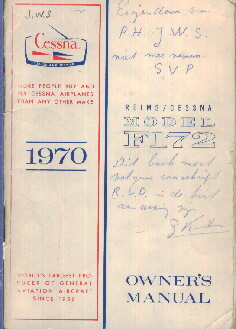 J.W.S
Cessna
MORE PEOPLE BUY AND
FLY CESSNA AIRPLANES
THAN ANY OTHER MAKE
1970
WORLD'S LARGEST PRO-
DUCER OF GENERAL
AVIATION AIRCRAFT
SINCE 1956
Eigendom van
P.H. J.W.S.
niet mee nemen
S V P
REIMS/CESSNA
MODEL
F172
Dit boek moet
volgens voorschrift
R.L.D. in de kist
aanwezig zijn
OWNER'S
MANUAL